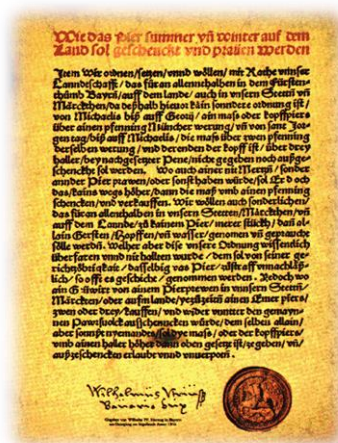 Wie das Pier summer vñ winter auf dem
Land sol geschenckt vnd prauen werden
Item Wir ordnen/setzen/vnnd wöllen/mit Rathe vnnser
Lanndtschafft/das für an allenthalben in dem Fürsten-
thumb Bayrn/auff dem lande/auch in vnsern Stettñ vñ
Märckthen/da deßhalb hieuor kain sonndere ordnung ist/
von Michaelis biß auff Georij/ain mass oder kopffpiers
über ainen pfenning Müncher werung/vñ von sant Jor-
gentag/biß auff Michaelis/die mass über zwen pfenning
derselben werung/vnd derenden der kopff ist/über drey
haller/bey nachgesetzter Pene/nicht gegeben noch außge-
schenckht sol werden. Wo auch ainer nit Mertzñ/sonder
annder Pier prawen/oder sonst haben würde/sol Er doch
das/kains wegs höher/dann die maß vmb ainen pfenning
schencken/vnd verkauffen. Wir wöllen auch sonderlichen/
das füran allenthalben in vnsern Stetten/Märckthen/vñ
auff dem Lannde/zů kainem Pier/merer stückh/dañ al-
lain Gersten/Hopffen/vñ wasser/genomen vñ gepraucht
sölle werdñ. Welher aber dise vnsere Ordnung wissentlich
überfaren vnnd nit hallten wurde/dem sol von seiner ge-
richtzöbrigkait/dasselbig vas Pier/zůstraff vnnachläß-
lich/so offt es geschicht/genommen werden. Yedoch wo
ain Gäuwirt von ainem Pierprewen in vnnsern Stettñ
Märckten/oder aufm lande/yezůzeitñ ainen Emer piers/
zwen oder drey/kauffen/vnd wider vnntter den gemayn-
nen Pawrsuolck ausschenncken würde/dem selben allain/
aber sonnßt nyemandes/sol dye mass/oder der kopffpiers/
vmb ainen haller höher dann oben gesetzt ist/ze geben/vñ/
außzeschencken erlaubt vnnd vnuerpotñ.